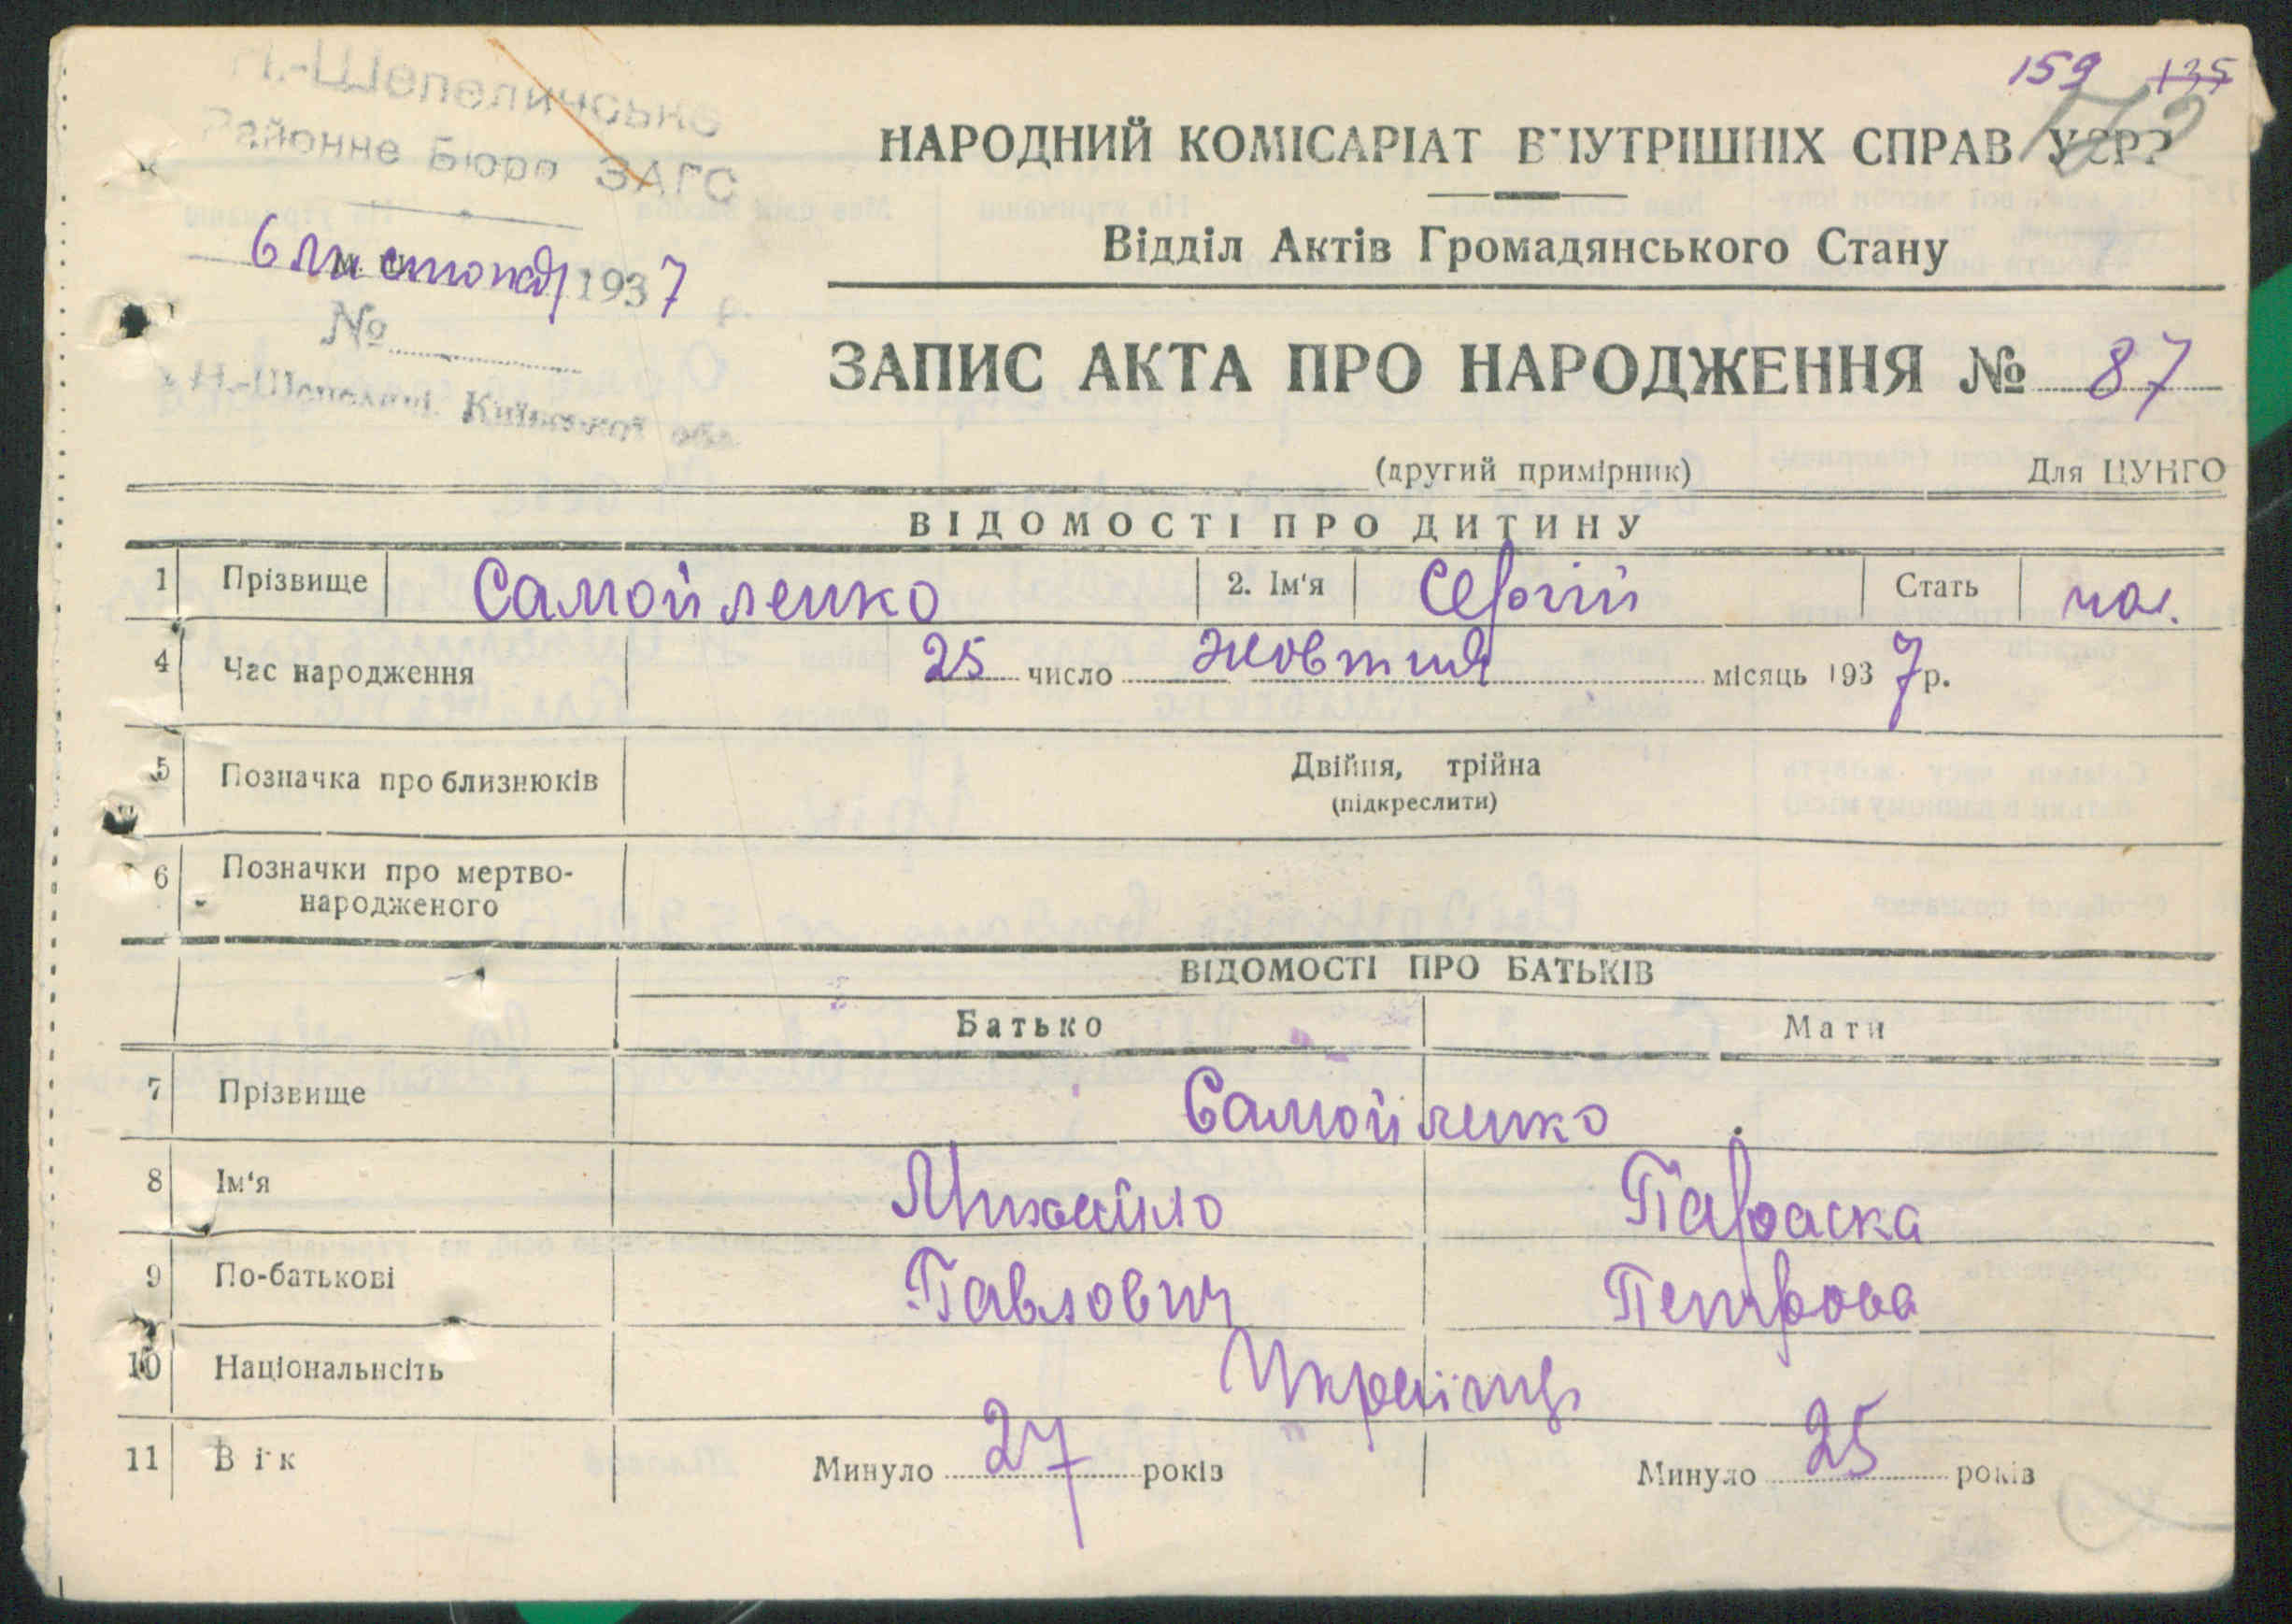 159 135
Н.-Шепелицьке
Районне Бюро ЗАГС
НАРОДНИЙ КОМІСАРІАТ ВНУТРІШНІХ СПРАВ УСРР
Відділ Актів Громадянського Стану
6 листопад 1937 р.
№
Н.-Шепеличі Київської обл.
ЗАПИС АКТА ПРО НАРОДЖЕННЯ № 87
(другий примірник) Для ЦУНГО
ВІДОМОСТІ ПРО ДИТИНУ
1 Прізвище Самойленко 2. Ім'я Сергій Стать чол.
4 Час народження 25 число жовтня місяць 1937 р.
5 Позначка про близнюків Двійня, трійна
(підкреслити)
6 Позначки про мертво-
народженого
ВІДОМОСТІ ПРО БАТЬКІВ
Батько Мати
7 Прізвище Самойленко
8 Ім'я Михайло Параска
9 По-батькові Павлович Петрова
10 Національнсіть Українці
11 Вік Минуло 27 років Минуло 25 років